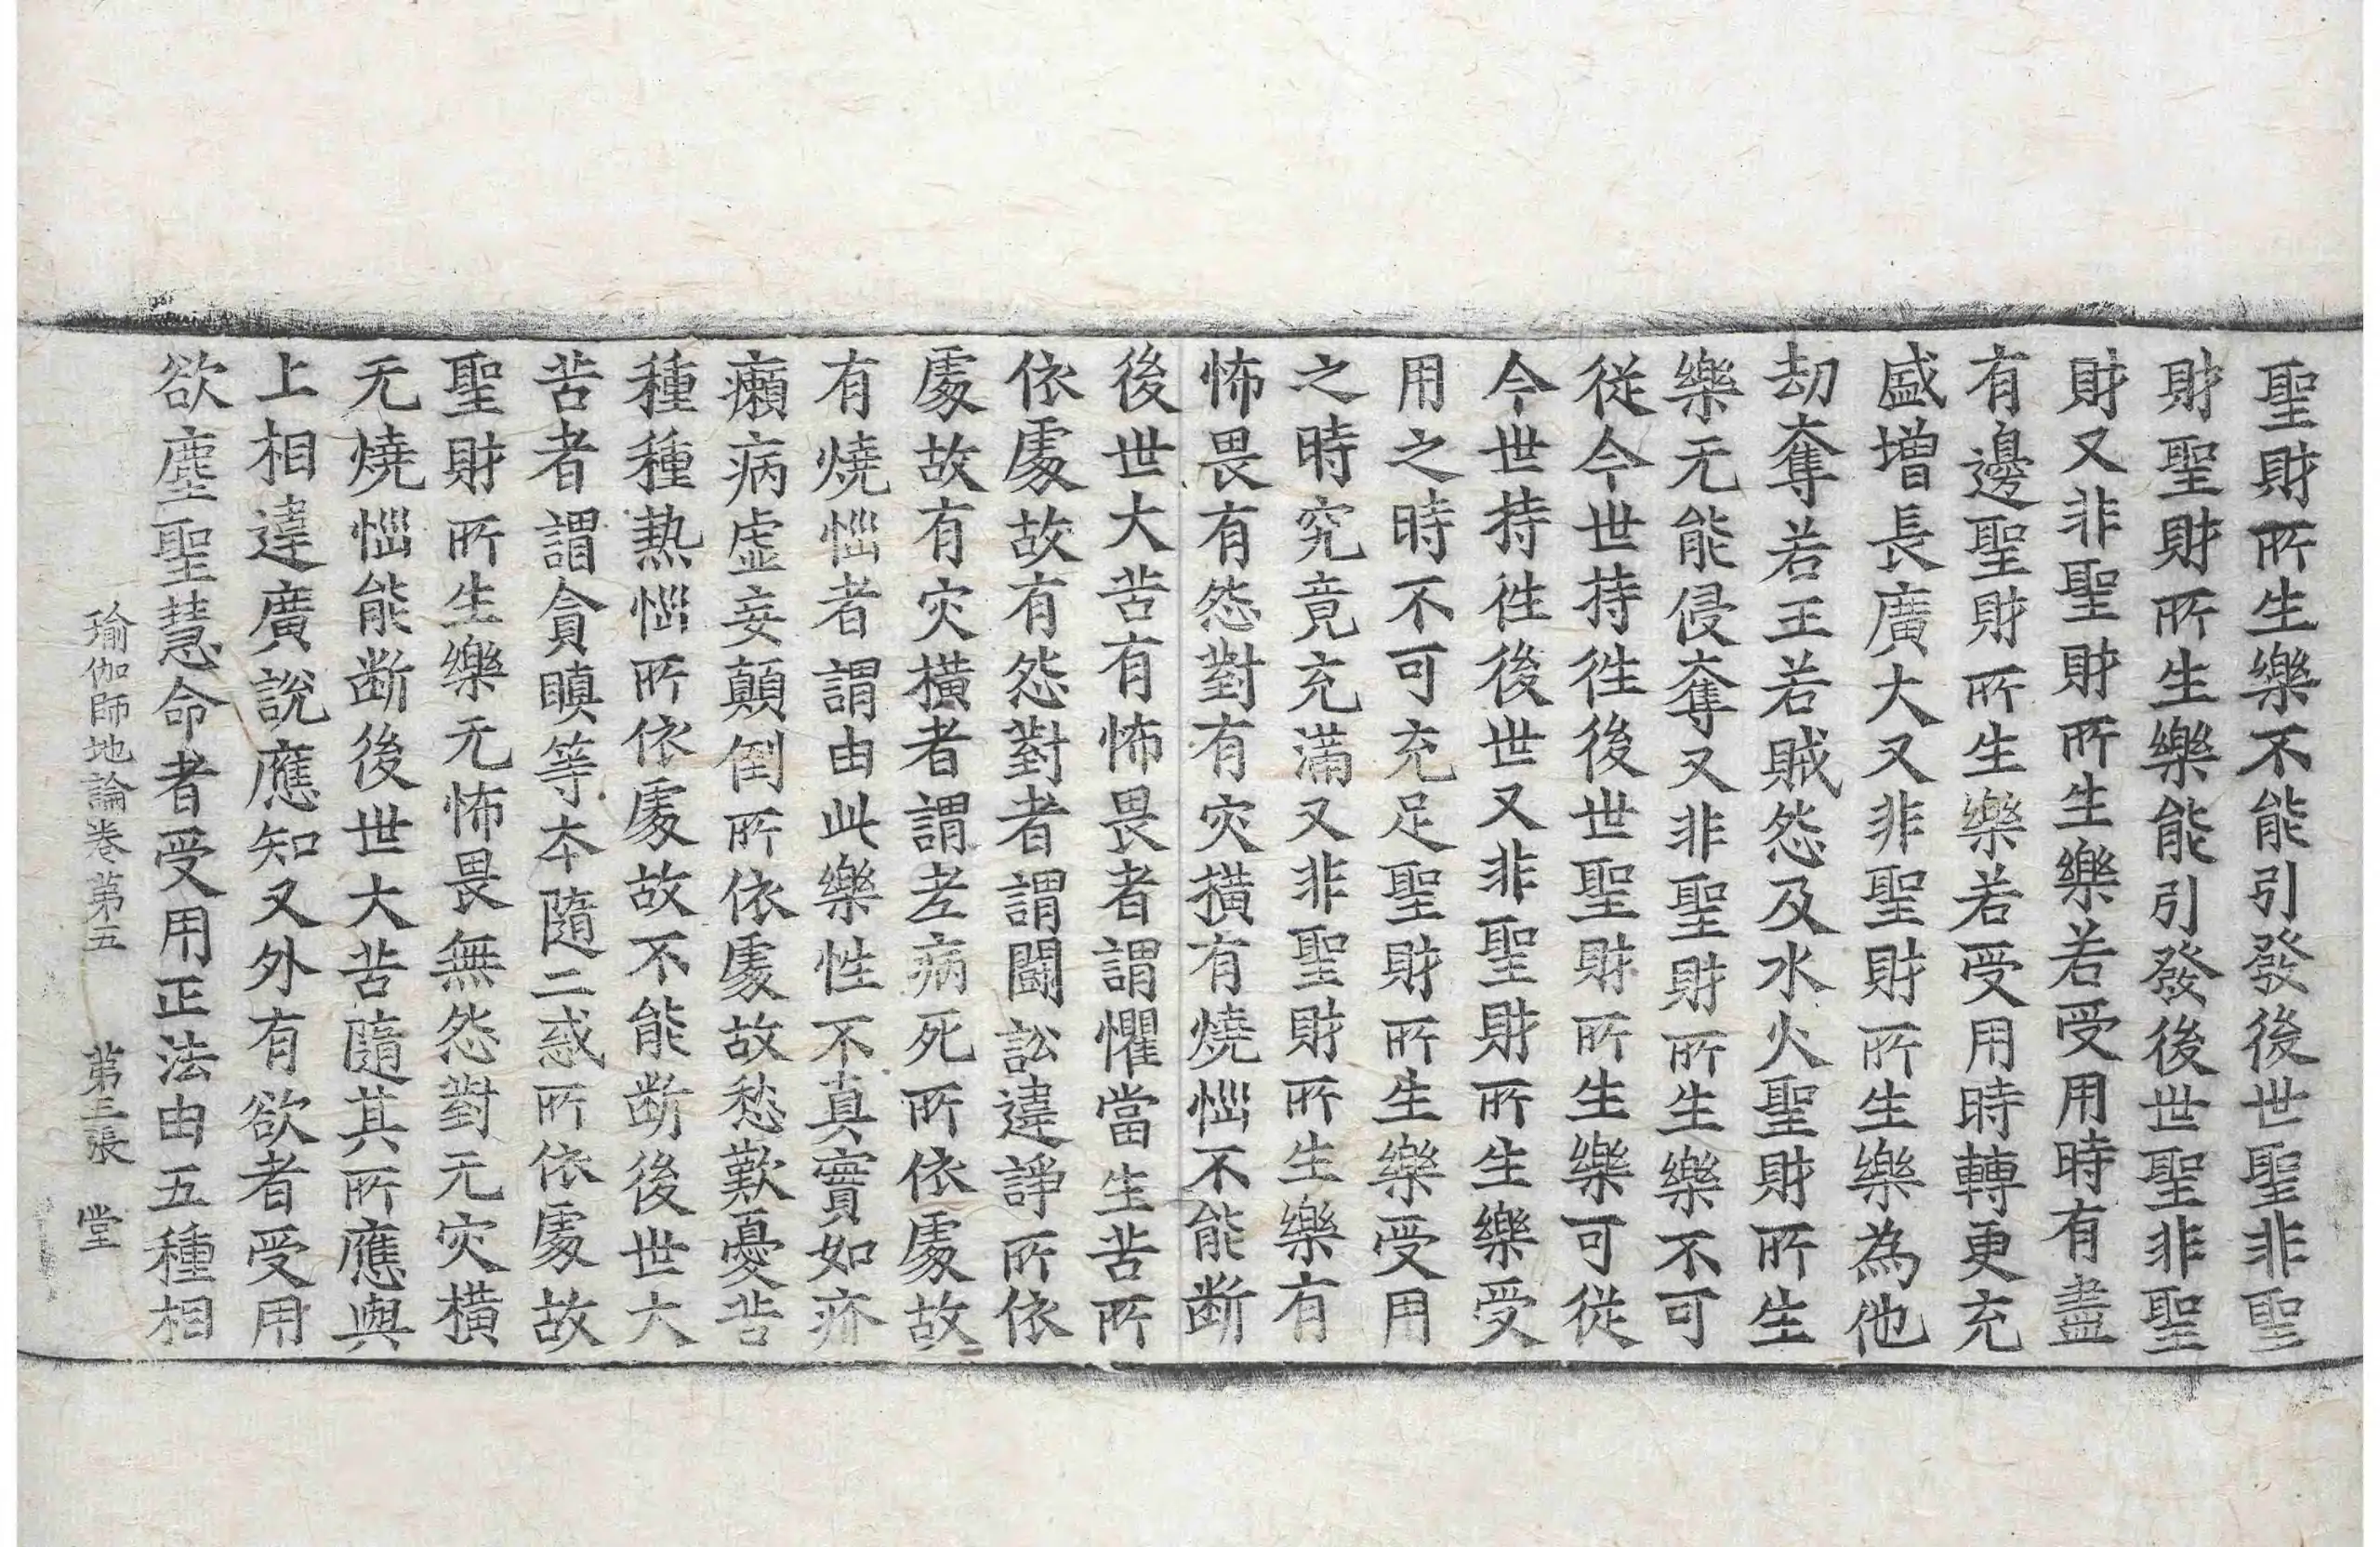 聖財所生樂不能引發後世聖非聖
財聖財所生樂能引發後世聖非聖
財又非聖財所生樂若受用時有盡
有邊聖財所生樂若受用時轉更充
盛增長廣大又非聖財所生樂為他
劫奪若王若賊怨及水火聖財所生
樂无能侵奪又非聖財所生樂不可
從今世持徃後世聖財所生樂可從
今世持徃後世又非聖財所生樂受
用之時不可充足聖財所生樂受用
之時究竟充滿又非聖財所生樂有
怖畏有怨對有灾橫有燒惱不能断
後世大苦有怖畏者謂懼當生苦所
依處故有怨對者謂鬪訟違諍所依
處故有灾橫者謂老病死所依處故
有燒惱者謂由此樂性不真實如疥
癩病虛妄顛倒所依處故愁歎憂苦
種種熱惱所依處故不能断後世大
苦者謂貪瞋等本隨二惑所依處故
聖財所生樂无怖畏無怨對无灾橫
无燒惱能断後世大苦隨其所應與
上相違廣說應知又外有欲者受用
欲塵聖慧命者受用正法由五種相
瑜伽師地論卷第五　第三張　堂